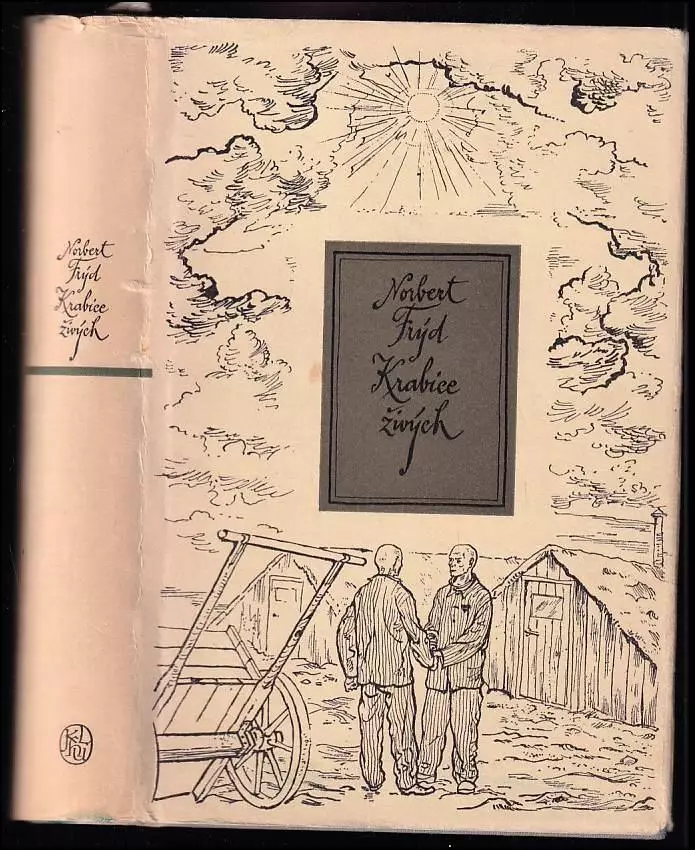 Norbert
Frýd
Krabice
živých
Norbert
Frýd
Krabice
živých